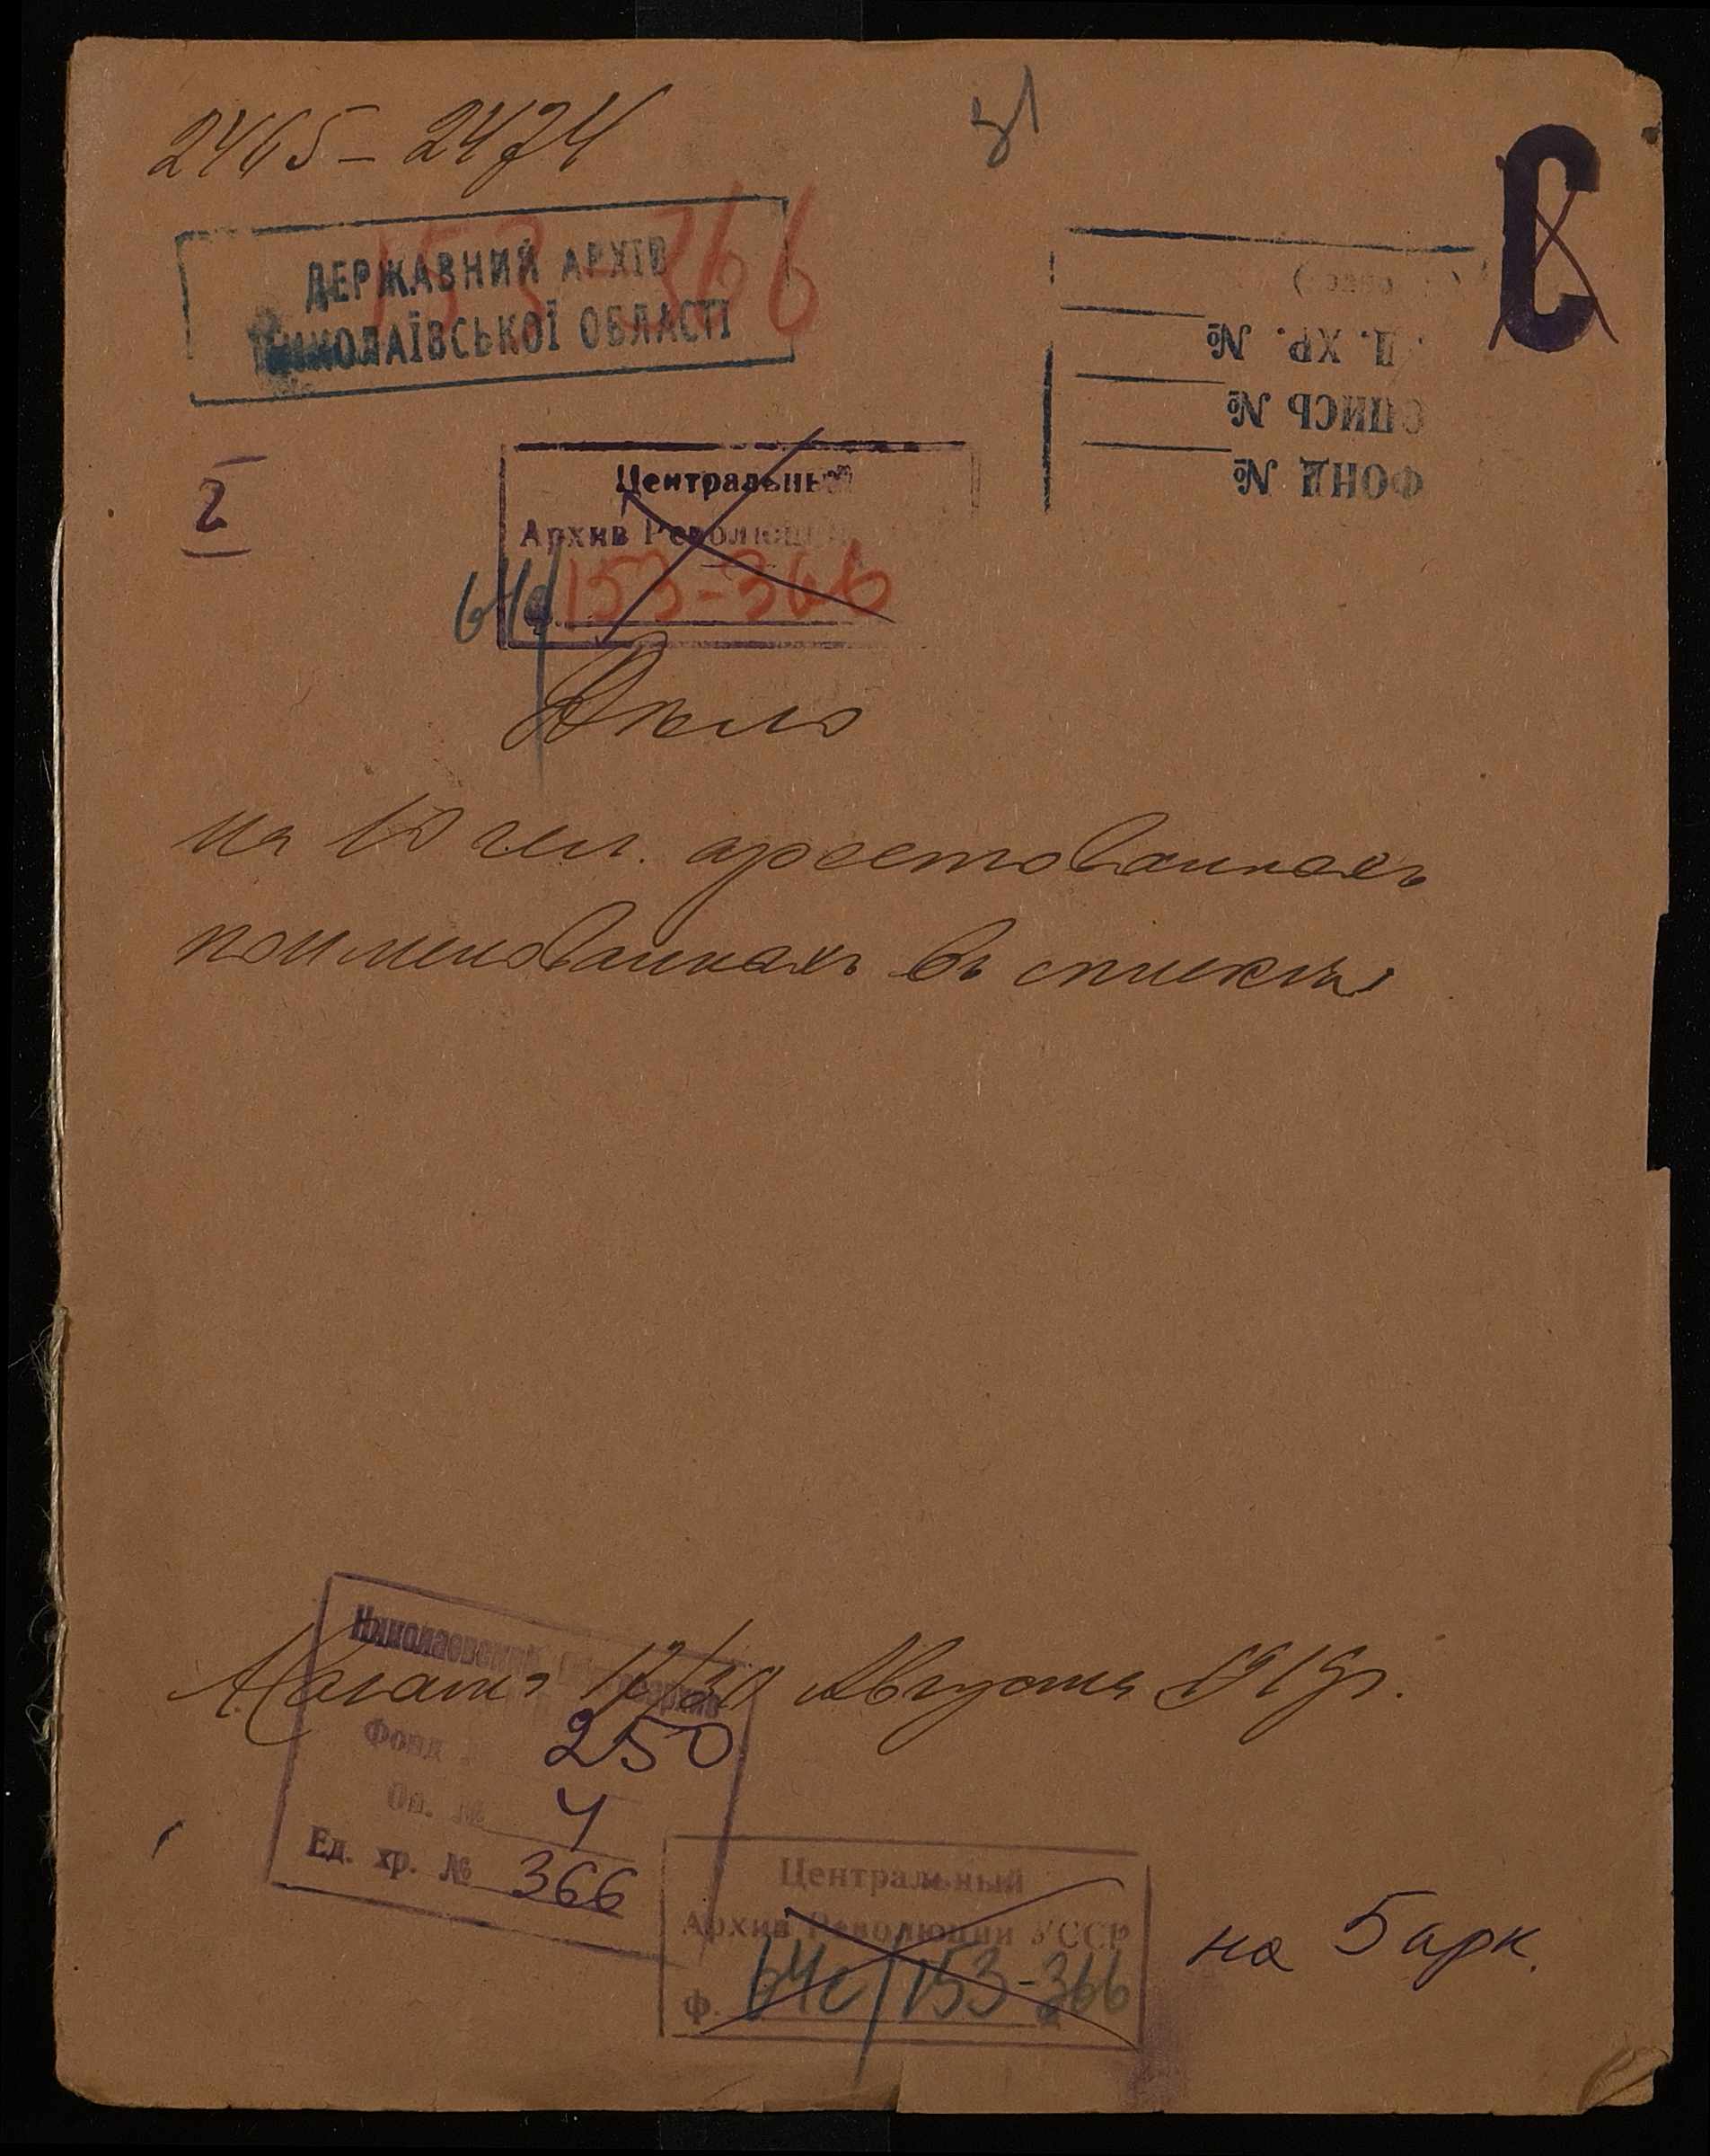 2465 – 2474
51
С
153 – 366
ДЕРЖАВНИЙ АРХІВ
МИКОЛАЇВСЬКОЇ ОБЛАСТІ
ФОНД №
ОПИСЬ №
Д. ХР. №
I
Центральный
Архив Революции
64с 153-366
Дѣло
на 10 чел. арестованныхъ
поименованныхъ въ спискѣ
Начато 17/30 Августа 1919 г.
Николаевский
Фонд 250
Оп. № 4
Ед. хр. № 366
Центральный
Архив Революции УССР
ф. 64с/153-366
на 5 арк.